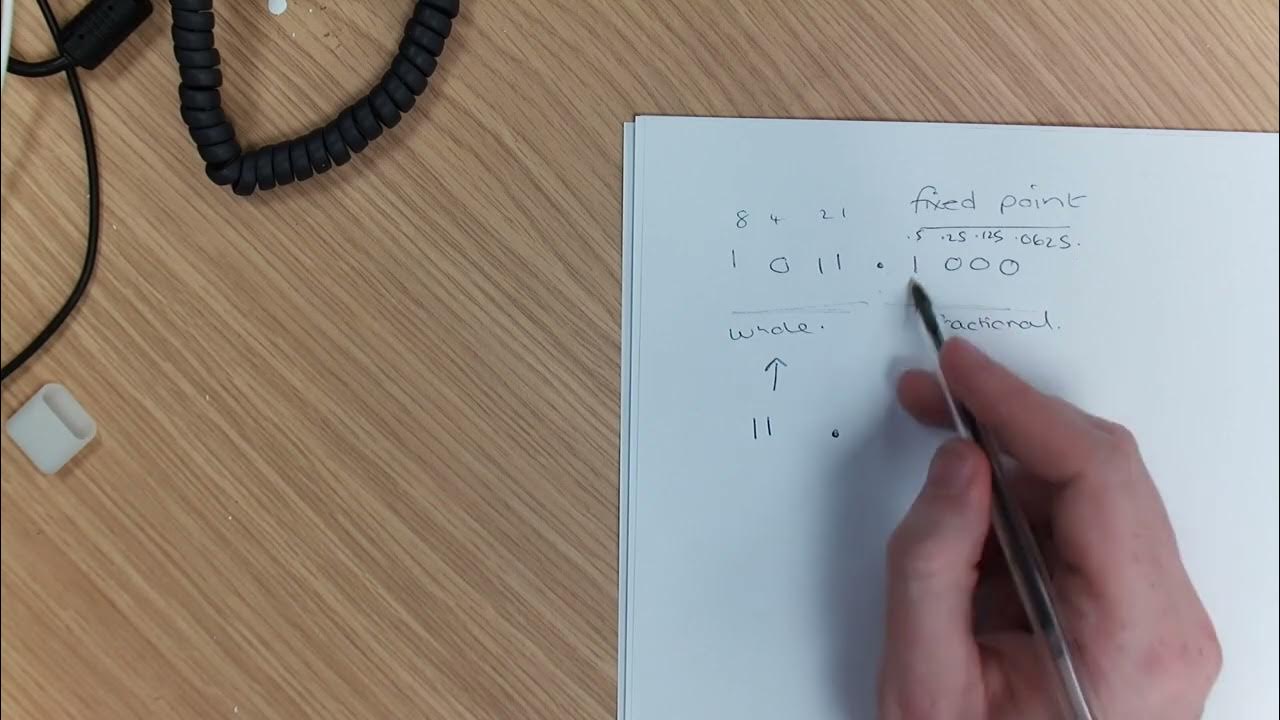 fixed point
8 4 21
.5 .25 .125 .0625.
1 0 11 . 1 000
whole. ractional.
↑
11 .